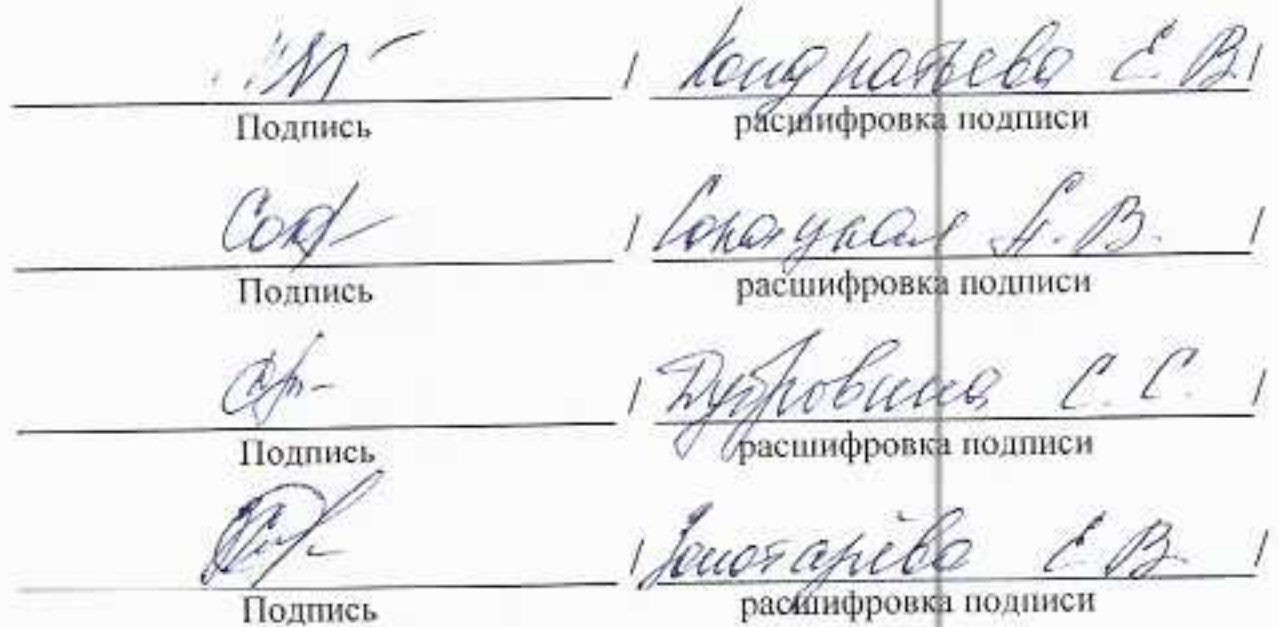 / Кондратьева Е. В. /
Подпись расшифровка подписи
/ А. В. /
Подпись расшифровка подписи
/ Дубровина С. С. /
Подпись расшифровка подписи
/ Золотарёва Е. В. /
Подпись расшифровка подписи